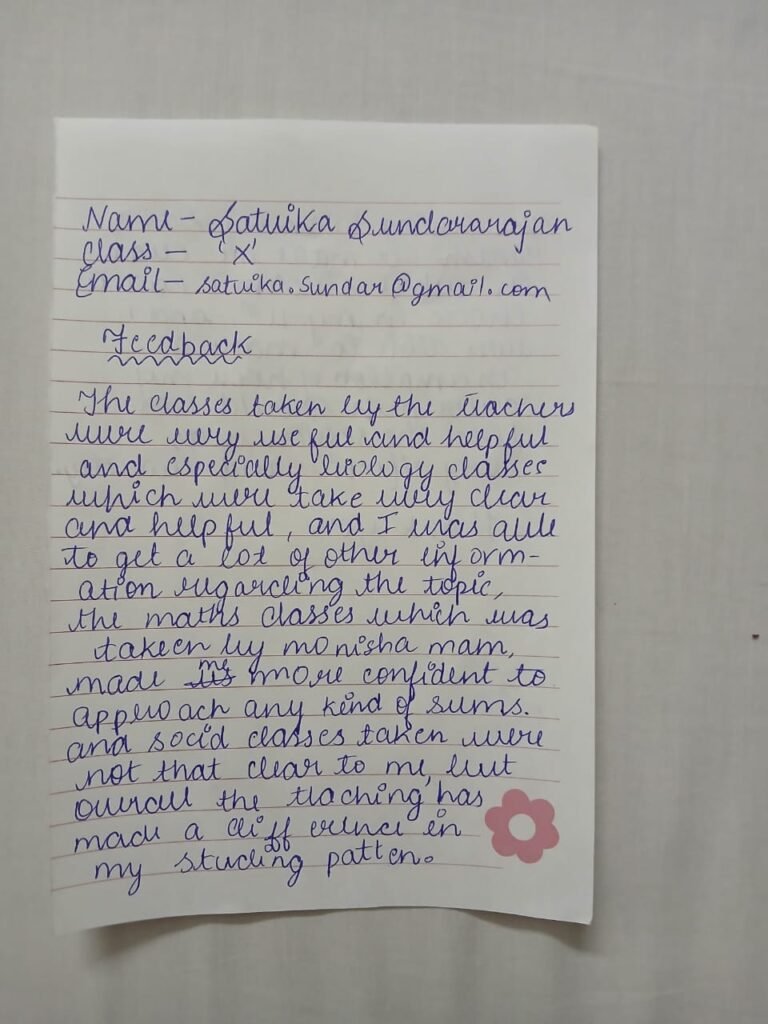 Name - Satvika Sundararajan
Class - 'X'
Email - satvika.sundar@gmail.com
Feedback
The classes taken by the teachers
were very useful and helpful
and especially biology classes
which were take very clear
and helpful, and I was able
to get a lot of other inform-
ation regarding the topic,
the maths classes which was
takeen by monisha mam,
made me more confident to
approach any kind of sums.
and social classes taken were
not that clear to me, but
overall the teaching has
made a difference in
my studing patten.